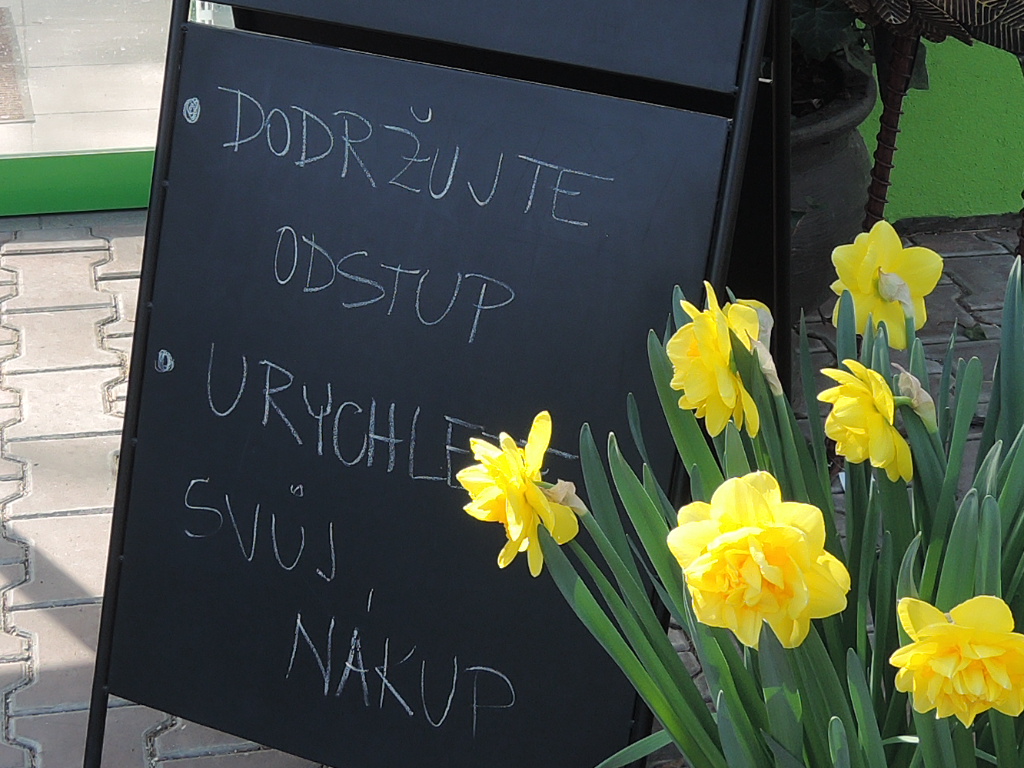 DODRŽUJTE
ODSTUP
URYCHLETE
SVŮJ
NÁKUP